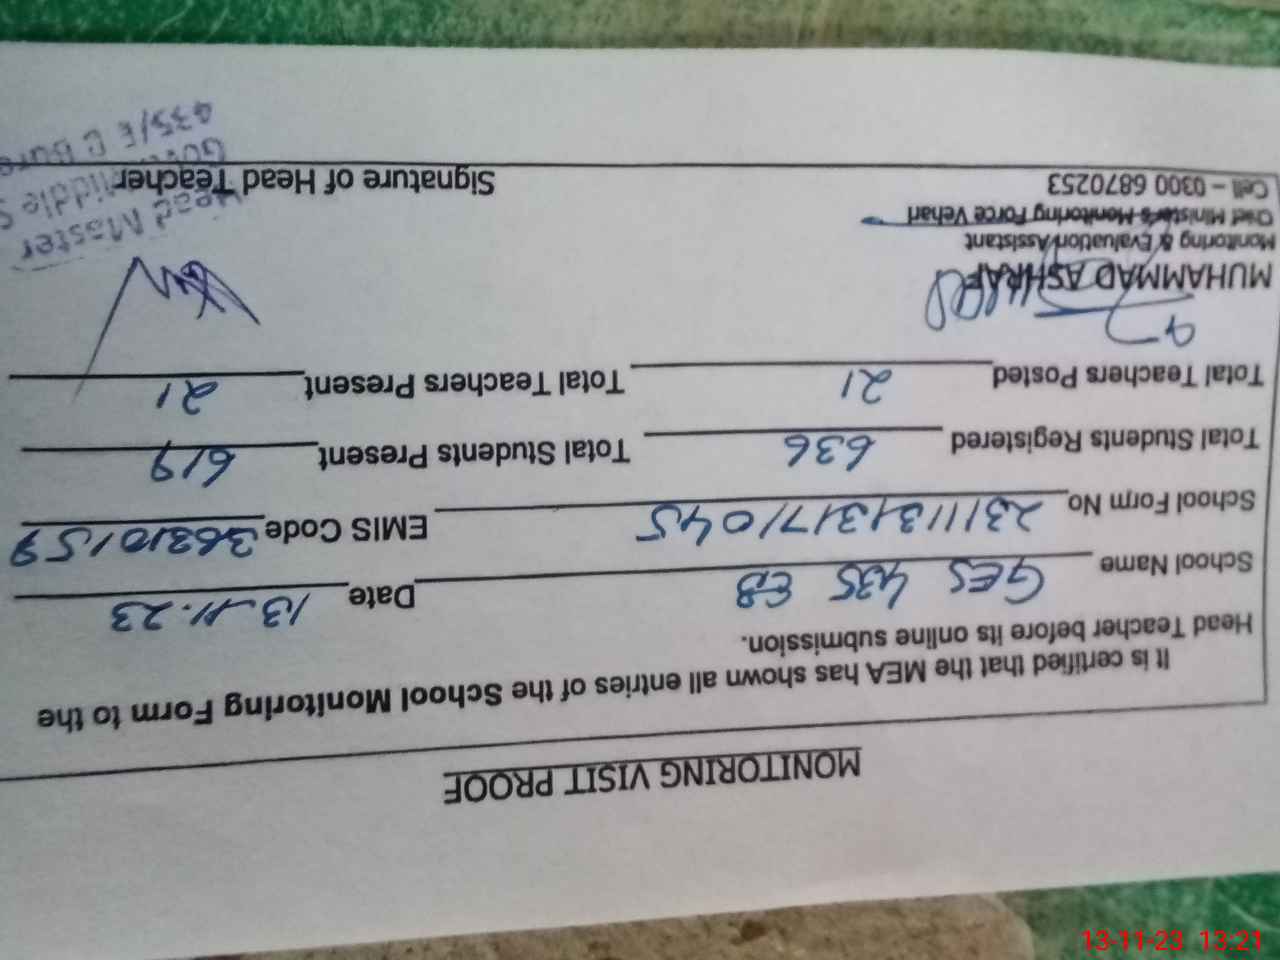 MONITORING VISIT PROOF
It is certified that the MEA has shown all entries of the School Monitoring Form to the
Head Teacher before its online submission.
School Name GES 435 EB Date 13.11.23
School Form No 23111313171045 EMIS Code 36310159
Total Students Registered 636 Total Students Present 619
Total Teachers Posted 21 Total Teachers Present 21
MUHAMMAD ASHRAF
Monitoring & Evaluation Assistant
Chief Minister's Monitoring Force Vehari
Cell – 0300 6870253 Signature of Head Teacher
Head Master
Govt. Middle S
435/E B Bure
13-11-23 13:21